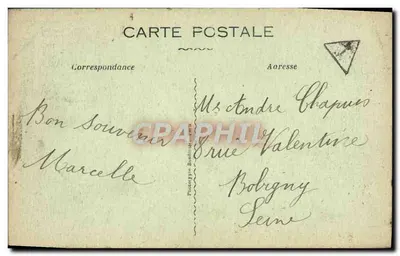 CARTE POSTALE
Correspondance
Adresse
Bon souvenir
Marcelle
Mr Andre Chapuis
8 rue Valentine
Bobigny
Seine